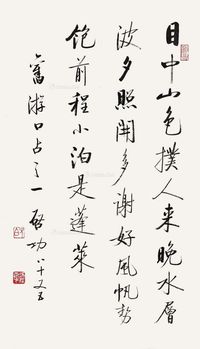 目中山色撲人来晚水層
波夕照開多謝好風帆勢
飽前程小泊是蓬萊
舊游口占之一 啓功 八十又五